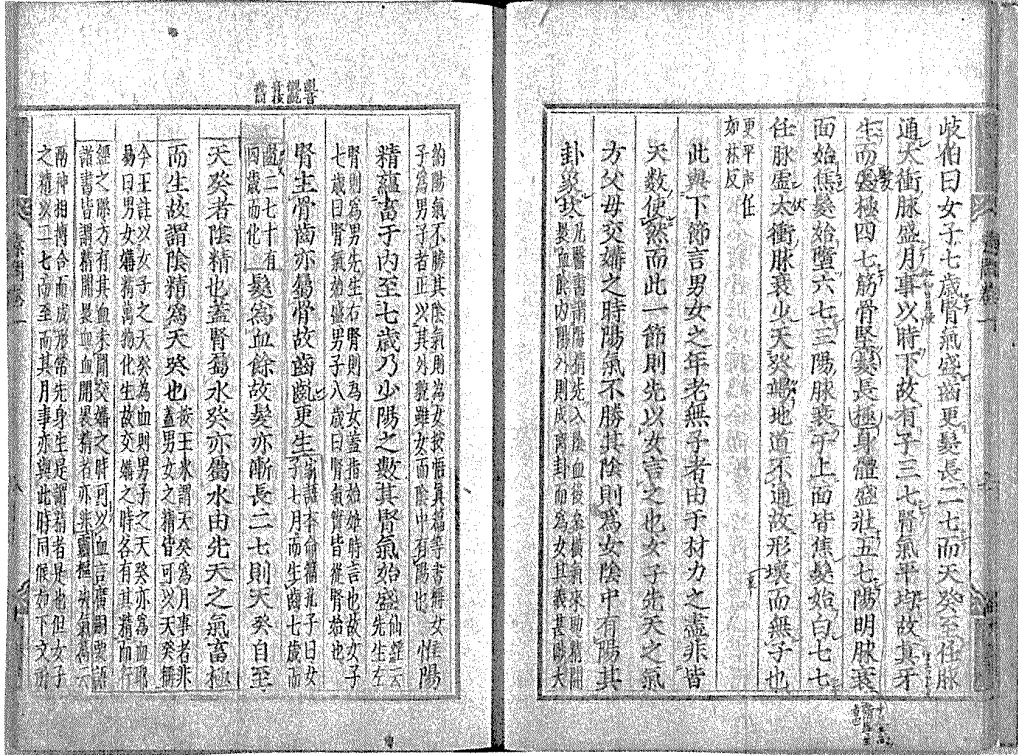 岐伯曰女子七歲腎氣盛齒更髮長二七而天癸至任脉
通太衝脉盛月事以時下故有子三七腎氣平均故真牙
生而長極四七筋骨堅髮長極身體盛壯五七陽明脉衰
面始焦髮始墮六七三陽脉衰于上面皆焦髮始白七七
任脉虛太衝脉衰少天癸竭地道不通故形壞而無子也
更平声任
如林反
此與下節言男女之年老無子者由于材力之盡非皆
天數使然而此一節則先以女言之也女子先天之氣
方父母交媾之時陽氣不勝其陰則爲女陰中有陽其
卦象坎
凡醫書謂陽精先入陰血後參橫氣來助精開
裹血陰內陽外則成離卦而爲女其甚陽大
約陽氣不勝其陰氣則爲女按
子爲男子者正以其外貌雖女而陰中有陽也
惟陽
精蘊畜于內至七歲乃少陽之數其腎氣始盛
腎則爲男先生右腎則爲女蓋指始妊時言也故女子
七歲曰腎氣始盛男子八歲曰腎氣實皆從腎始也
腎主骨齒亦屬骨故齒齔更生
家語本命篇孔子曰女
子七月而生齒七歲而
齔二七十有
四歲而化
髮爲血餘故髮亦漸長二七則天癸自至
天癸者陰精也蓋腎屬水癸亦屬水由先天之氣畜極
而生故謂陰精爲天癸也
按王氷謂天癸爲月事者非
蓋男女之精皆可以天癸稱
今王註以女子之天癸爲血則男子之天癸亦爲血耶
易曰男女媾精萬物化生故交媾之時各有其精而行
經之際方有其血未聞交媾之時可以血言廣嗣要語
諸書皆謂精開裹血血開裹精者亦非靈樞神氣篇云
兩神相搏合而成形常先身生是謂精者是也但女子
之精以二七而至而其月事亦與此時同候如下文所